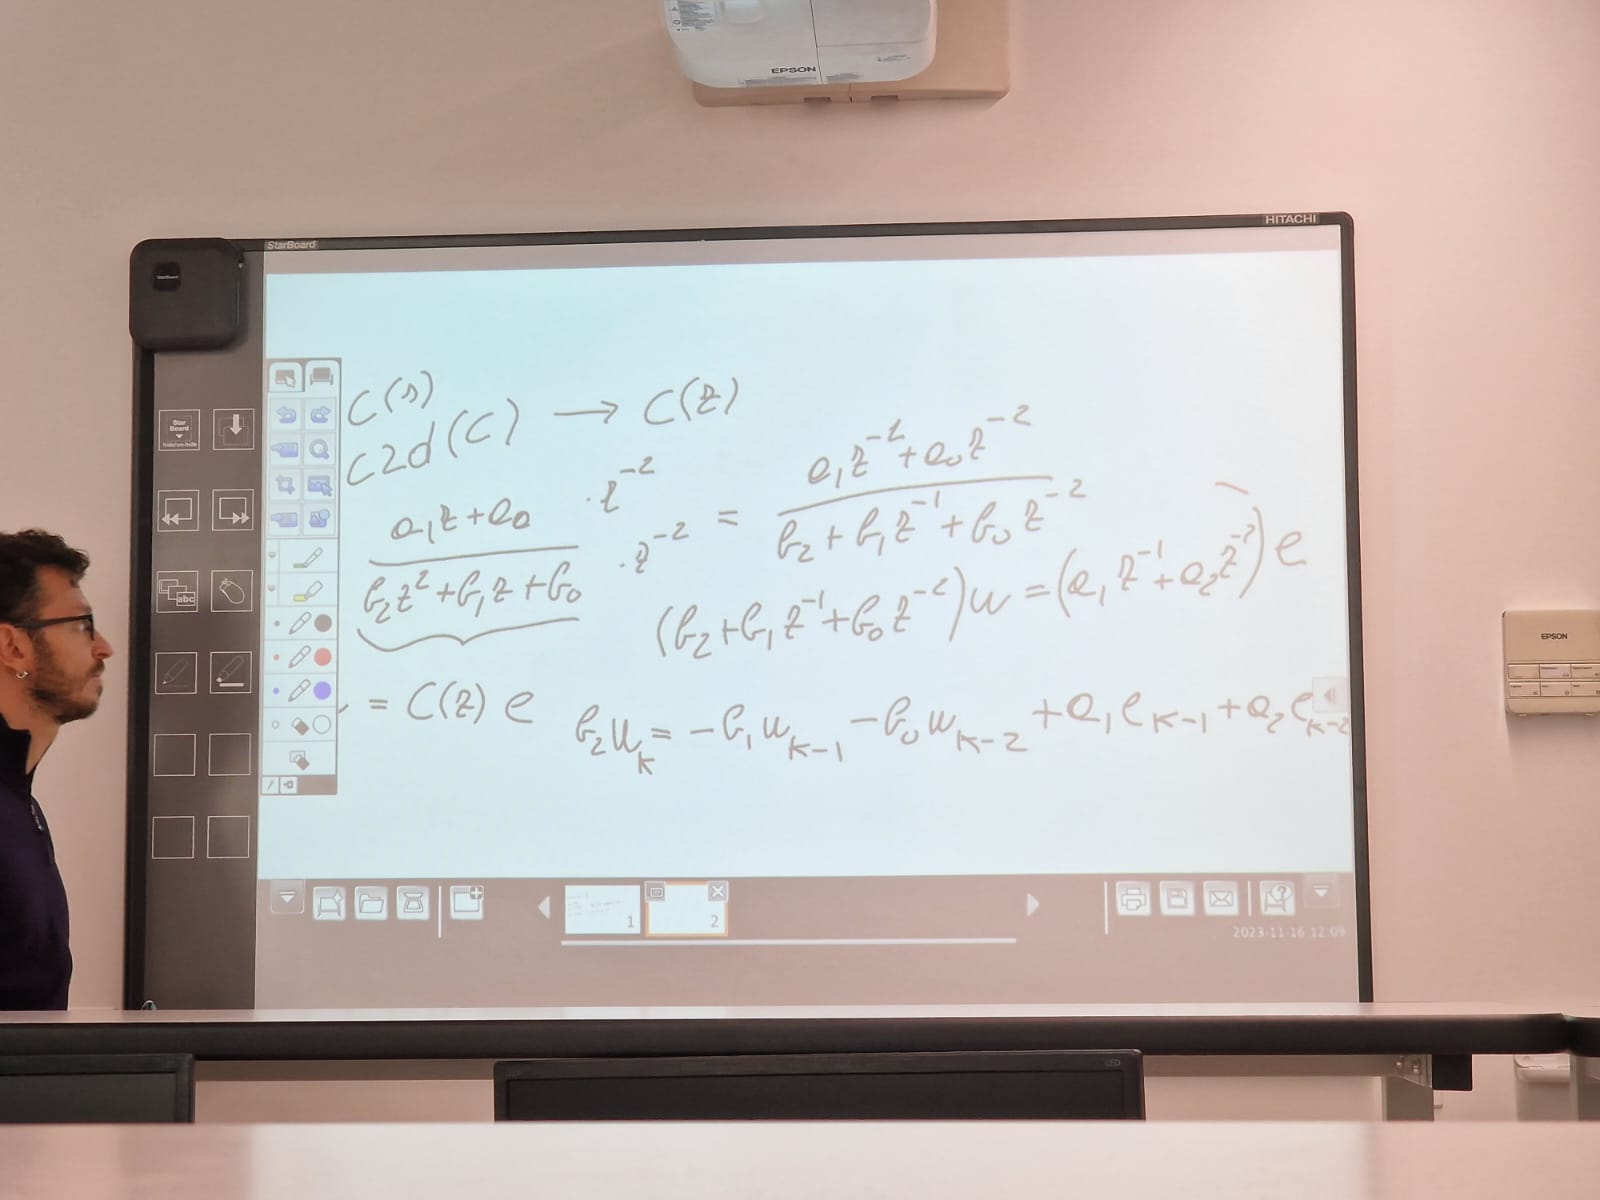 EPSON
HITACHI
StarBoard
StarBoard
Star Board
abc
C(s)
c2d(C) → C(z)
a₁z+a₀ / b₂z²+b₁z+b₀ · z⁻² / · z⁻² = a₁z⁻¹+a₀z⁻² / b₂+b₁z⁻¹+b₀z⁻²
(b₂+b₁z⁻¹+b₀z⁻²)u=(a₁z⁻¹+a₂z⁻²)e
= C(z) e
b₂uₖ= -b₁uₖ₋₁ -b₀uₖ₋₂ +a₁eₖ₋₁ +a₂eₖ₋₂
1
2
2023-11-16 12:09
EPSON